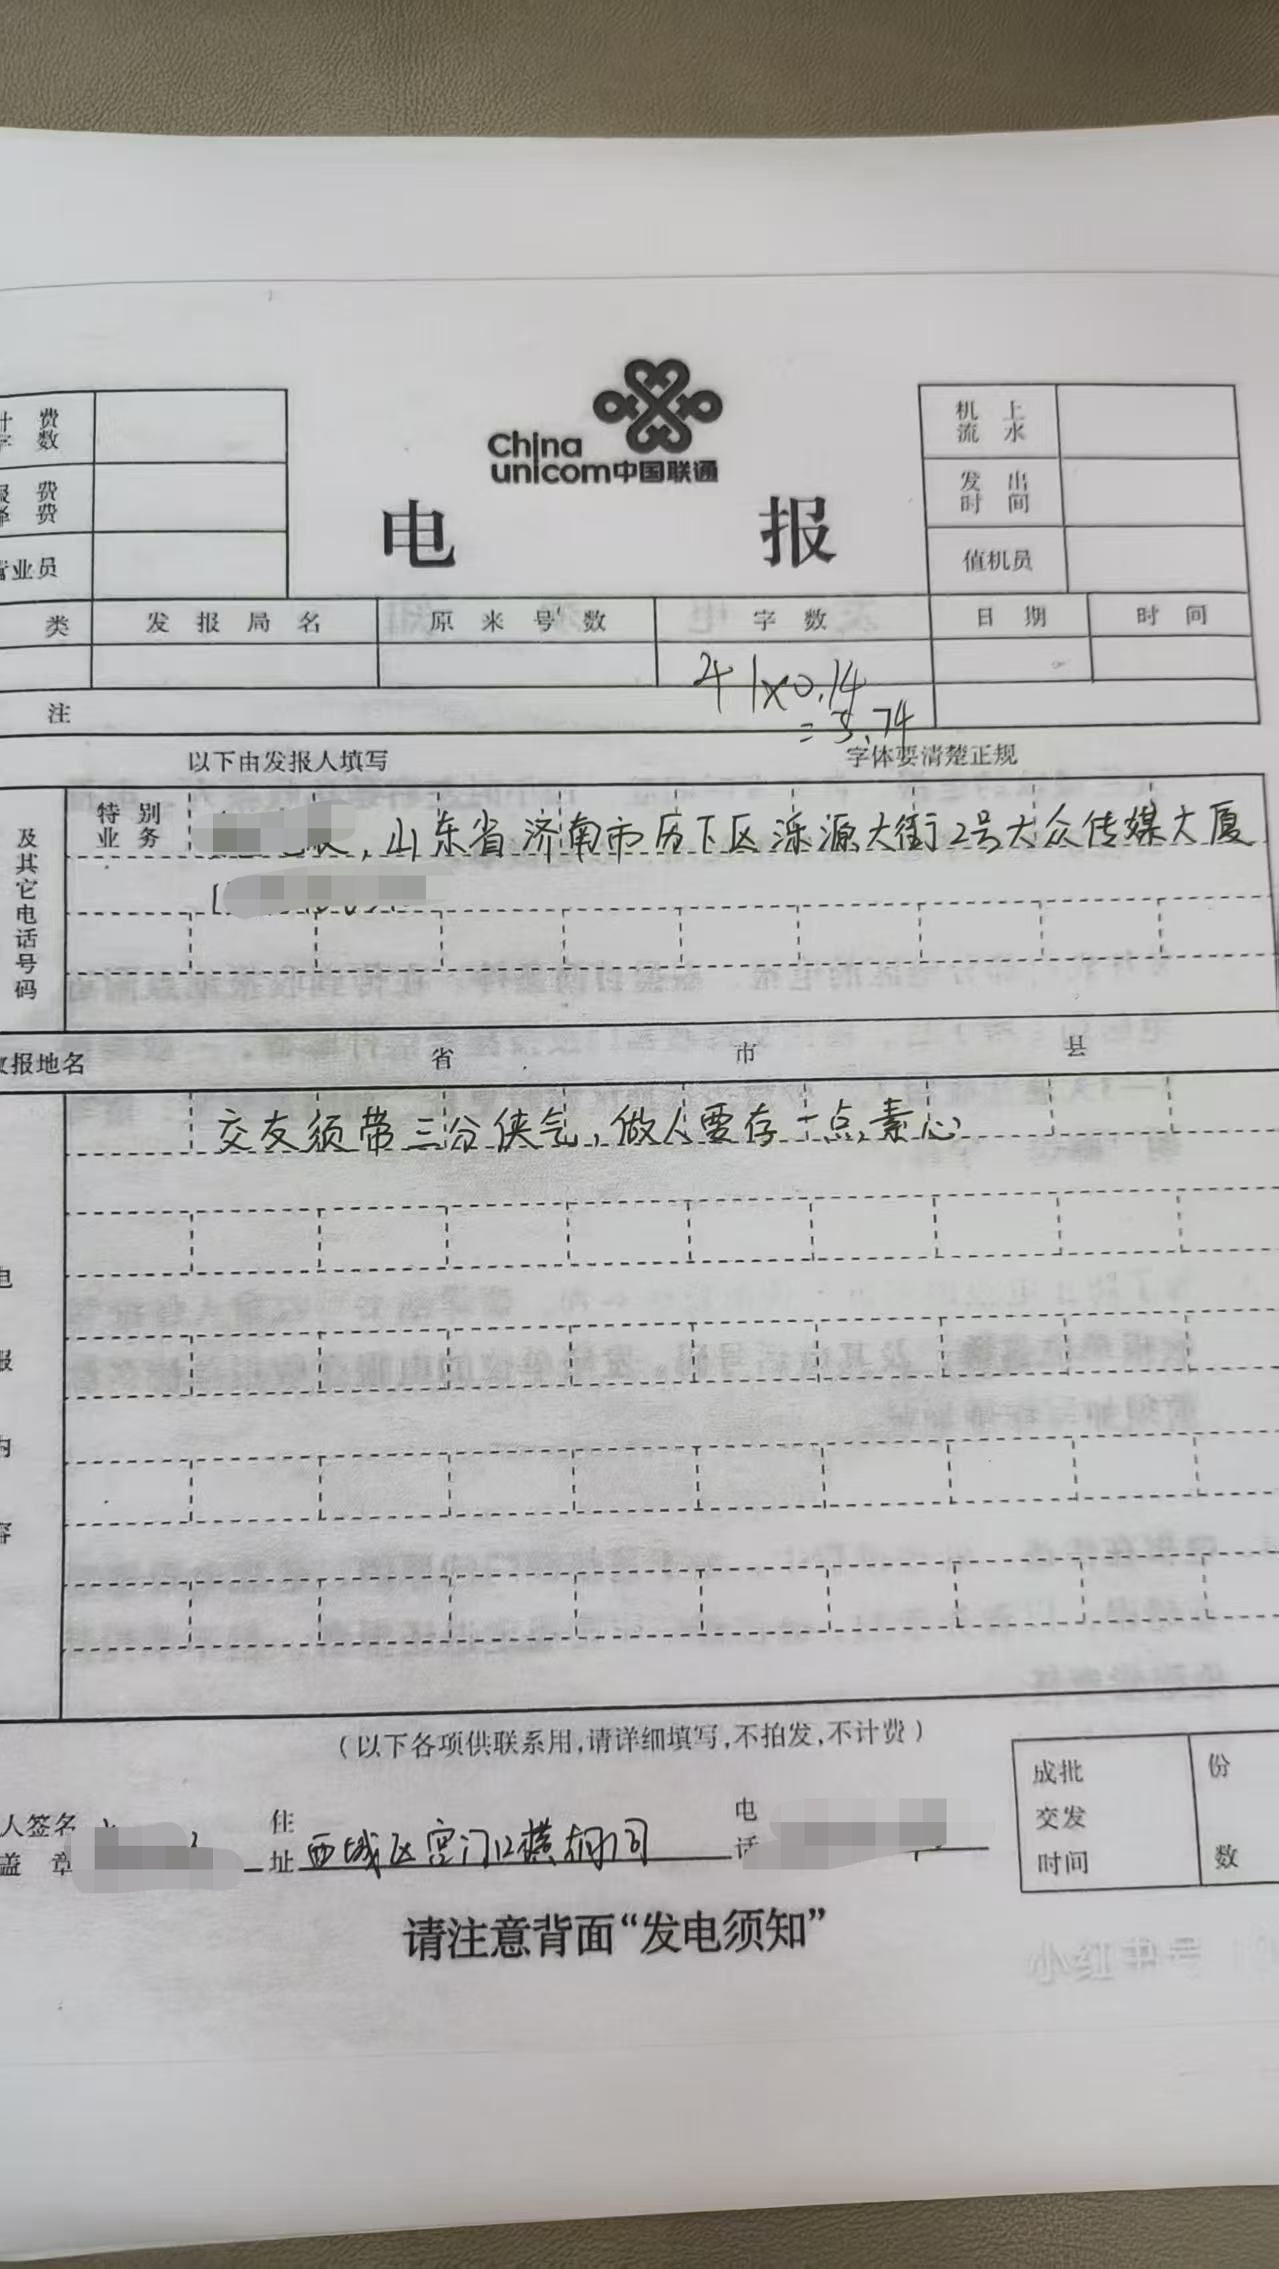 China
unicom中国联通
电 报
费
数
费
费
业员
机 上
流 水
发 出
时 间
值机员
类 发 报 局 名 原 来 号 数 字 数 日 期 时 间
41x0.14
=5.74
注
以下由发报人填写 字体要清楚正规
及其它电话号码
特 别
业 务
,山东省济南市历下区泺源大街2号大众传媒大厦
报地名 省 市 县
电报内容
交友须带三分侠气,做人要存一点素心
(以下各项供联系用,请详细填写,不拍发,不计费)
人签名
盖 章
住
址 西城区宫门口横胡同
电
话
成批
交发
时间
份
数
请注意背面“发电须知”